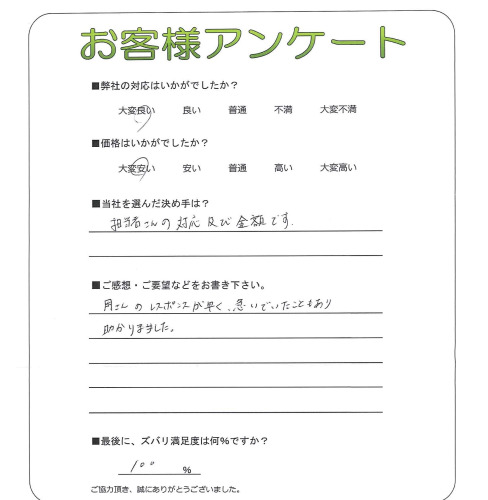 お客様アンケート
■弊社の対応はいかがでしたか？
大変良い 良い 普通 不満 大変不満
■価格はいかがでしたか？
大変安い 安い 普通 高い 大変高い
■当社を選んだ決め手は？
担当者さんの対応及び金額です.
■ご感想・ご要望などをお書き下さい。
さんのレスポンスが早く、急いでいたこともあり
助かりました。
■最後に、ズバリ満足度は何％ですか？
100 %
ご協力頂き、誠にありがとうございました。